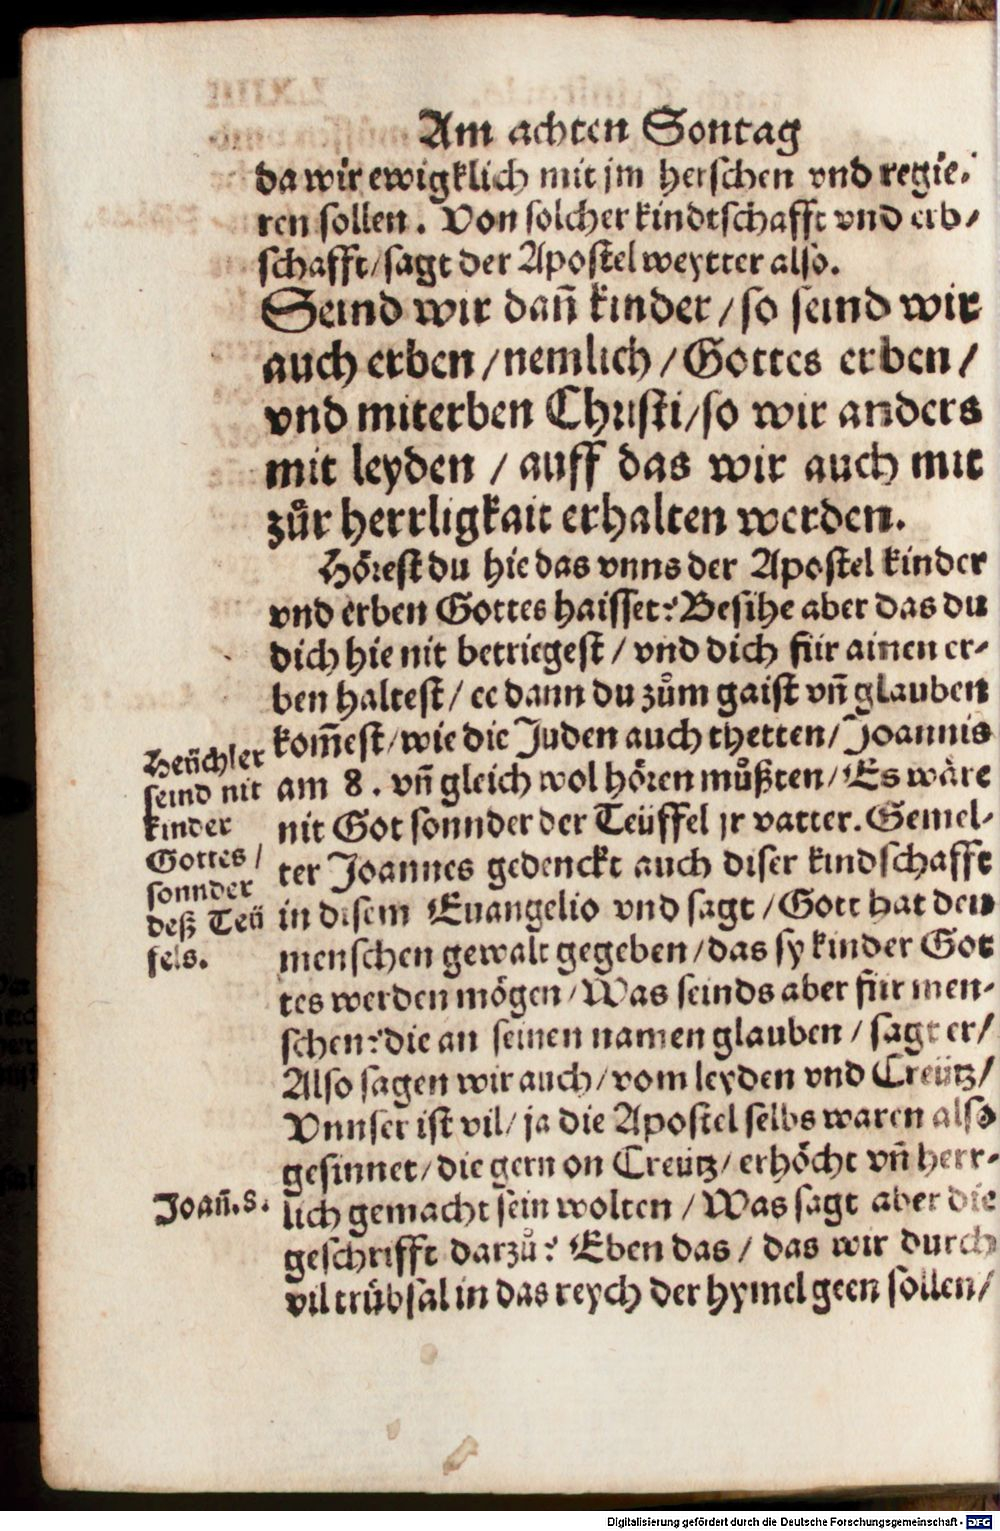 Am achten Sontag
da wir ewigklich mit jm herschen vnd regie-
ren sollen. Von solcher kindtschafft vnd erb-
schafft/sagt der Apostel weytter also.
Seind wir dañ kinder/so seind wir
auch erben/nemlich/Gottes erben/
vnd miterben Christi/so wir anders
mit leyden/auff das wir auch mit
zůr herrligkait erhalten werden.
Hörest du hie das vnns der Apostel kinder
vnd erben Gottes haisset? Besihe aber das du
dich hie nit betriegest/vnd dich für ainen er-
ben haltest/ee dann du zům gaist vñ glauben
kom̃est/wie die Juden auch thetten/Joannis
am 8. vñ gleich wol hören můßten/Es wäre
nit Got sonnder der Teüffel jr vatter. Gemel-
ter Joannes gedenckt auch diser kindschafft
in disem Euangelio vnd sagt/Gott hat den
menschen gewalt gegeben/das sy kinder Got
tes werden mögen/Was seinds aber für men-
schen? die an seinen namen glauben/sagt er/
Also sagen wir auch/vom leyden vnd Creütz/
Vnnser ist vil/ja die Apostel selbs waren also
gesinnet/die gern on Creütz/erhöcht vñ herr-
lich gemacht sein wolten/Was sagt aber die
geschrifft darzů? Eben das/das wir durch
vil trübsal in das reych der hymel geen sollen/
Heüchler
seind nit
kinder
Gottes/
sonnder
deß Teü
fels.
Joañ.8.
Digitalisierung gefördert durch die Deutsche Forschungsgemeinschaft - DFG